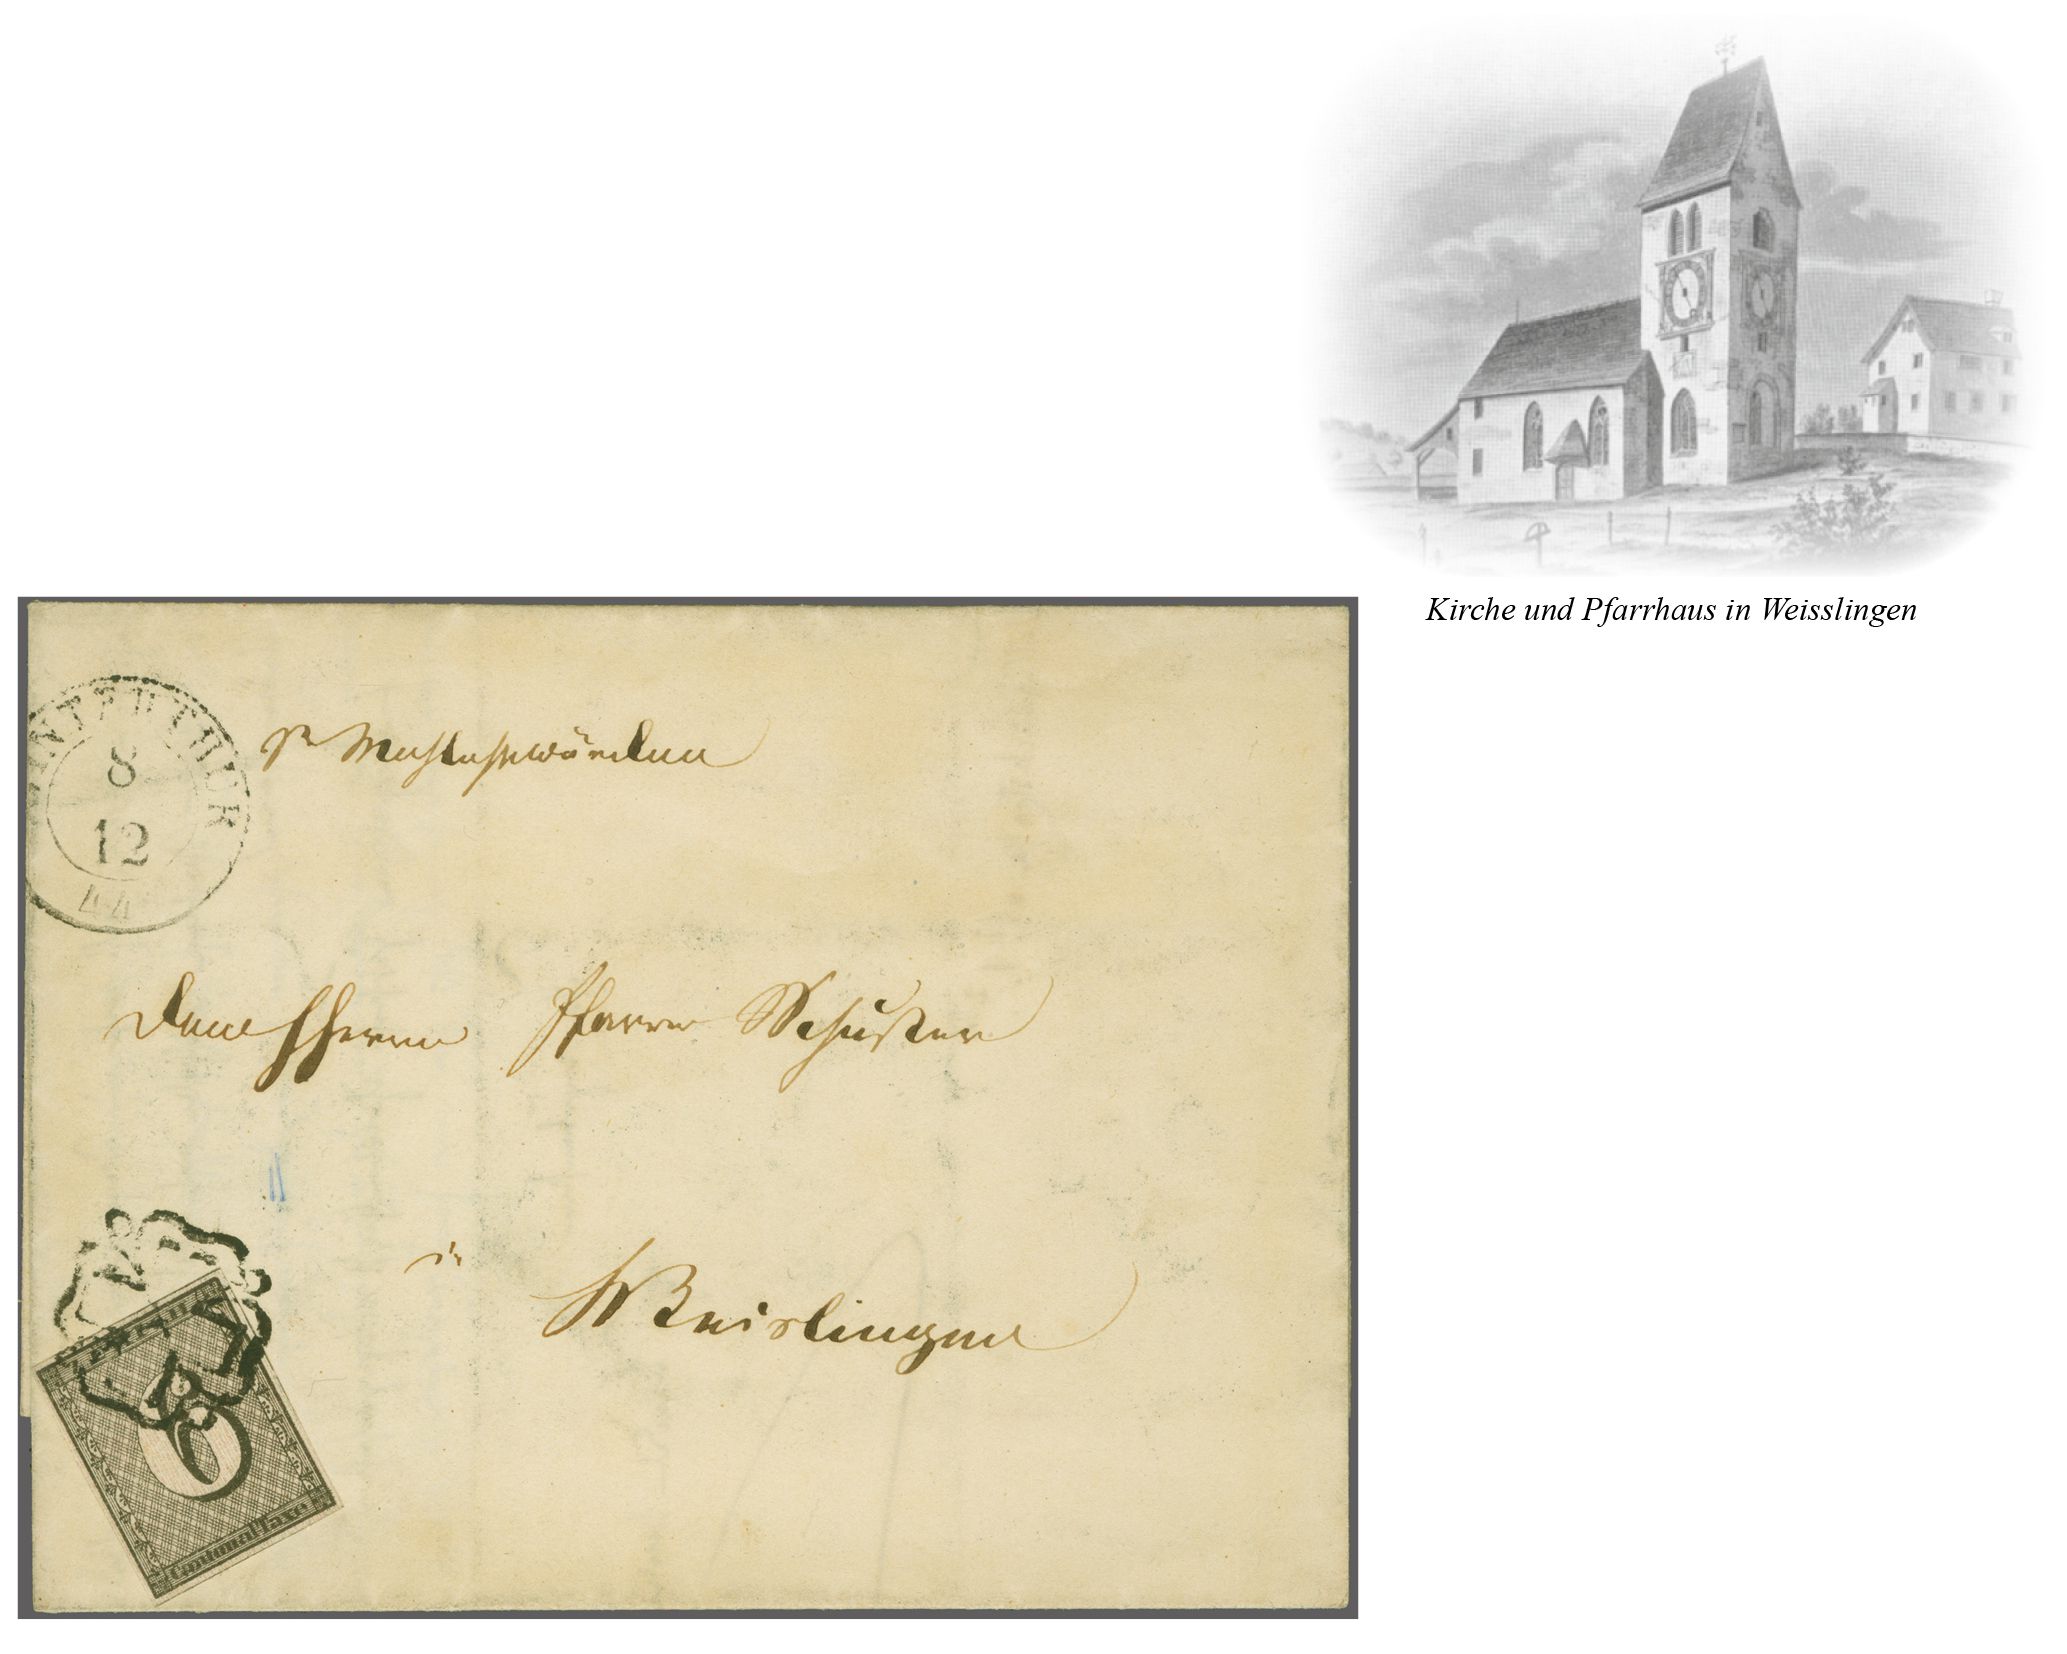 Kirche und Pfarrhaus in Weisslingen
WINTERTHUR
8
12
44
Dem HHerrn Pfarrer Schuster
in
Weislingen
ZÜRICH
6
Cantonal-Taxe